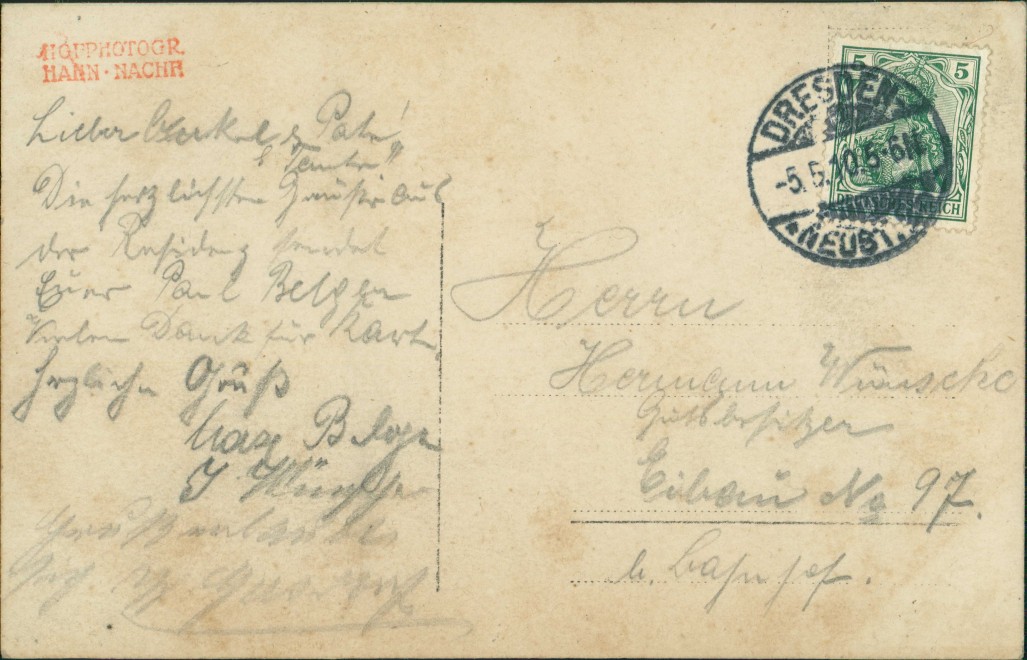 HOFPHOTOGR.
HAHN · NACHF
Lieber Onkel & Pate!
& Tante"
Die herzlichsten Grüße aus
der Residenz sendet
Euer Paul Belger
Vielen Dank für Karte
Herzliche Grüß
Max Belger
Gruß erlaubt
sich
5 5
DEUTSCHES REICH
DRESDEN-
-5.5.10.5-6N.
NEUST.
Herrn
Hermann Wünsche
Gutsbesitzer
Eibau No 97.
b. Bahnhof.